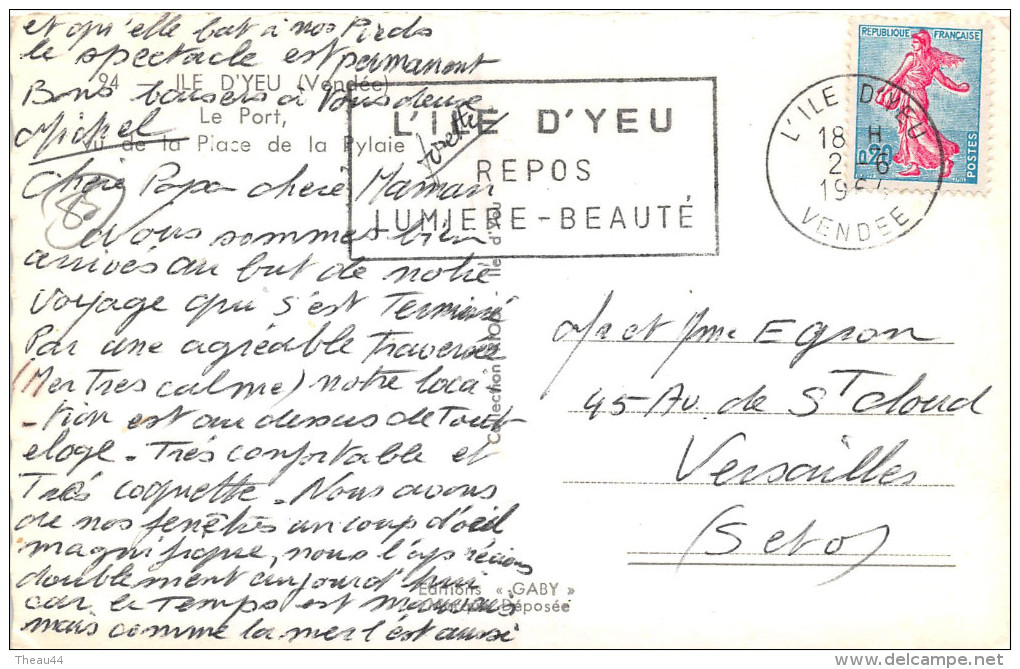 et qu'elle bat à nos Pieds
le spectacle est permanent
Bons baisers à Vous deux
Michel
Josette
94 - ILE D'YEU (Vendée)
Le Port,
Vu de la Place de la Pylaie
Chère Papa chère Maman
Nous sommes bien
arrivés au but de notre
voyage qui s'est Terminé
Par une agréable Traversée
(Mer Très calme) notre loca
-tion est au dessus de Tout
eloge - Très confortable et
Très coquette - Nous avons
de nos fenêtres un coup d'oeil
magnifique, nous l'apprécions
doublement aujourd'hui
car le Temps est mauvais
mais comme la mer l'est aussi
Editions « GABY »
Déposée
Collection
Ile d'Yeu
L'ILE D'YEU
REPOS
LUMIERE - BEAUTÉ
L'ILE D'YEU
18 H
2 6
196
VENDEE
REPUBLIQUE FRANÇAISE
0,20
POSTES
Mr et Mme Egron
45 Av. de St Cloud
Versailles
(S et O)
Theau44
delcampe.net